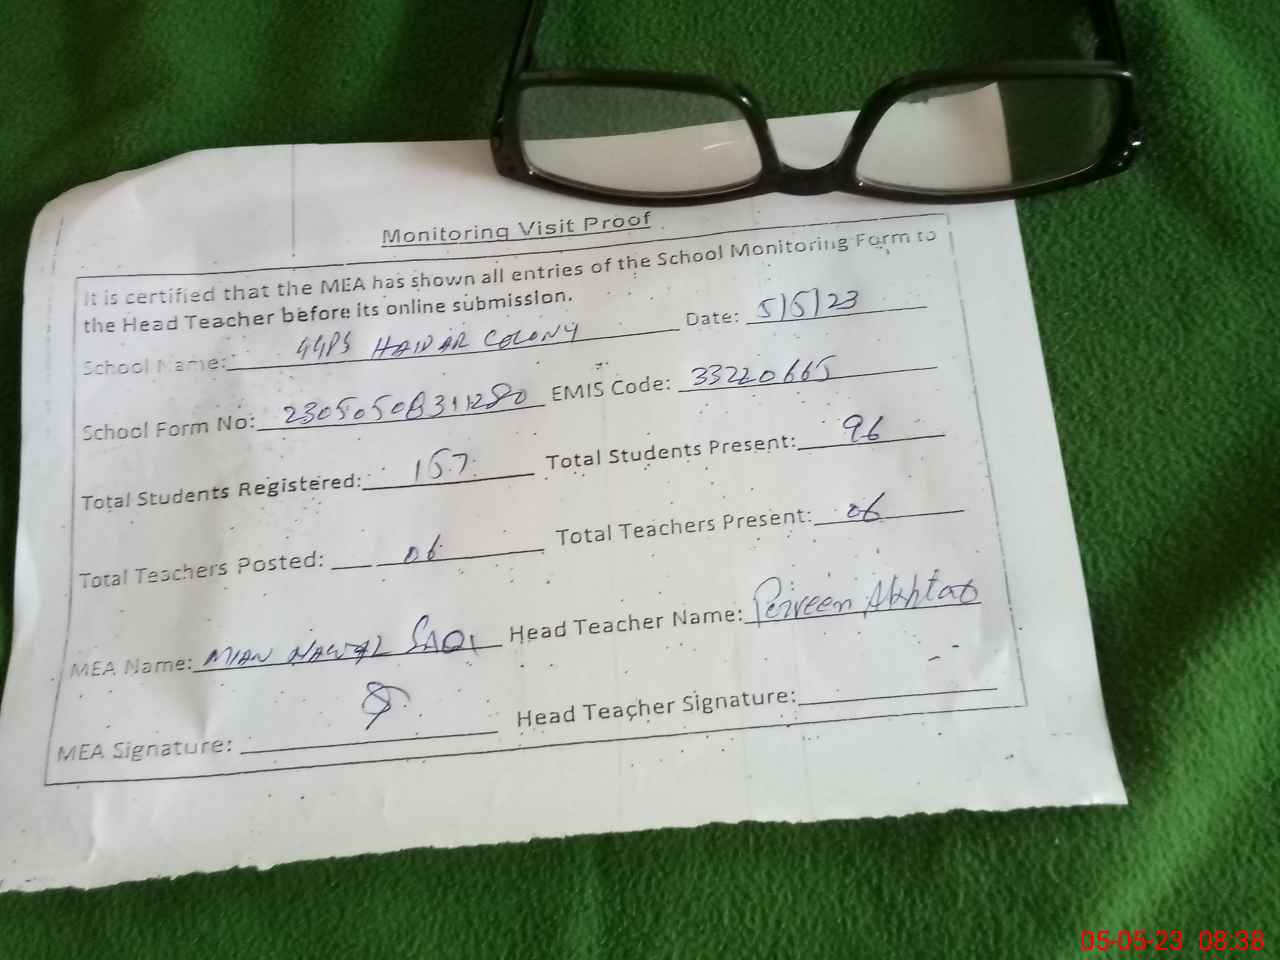 Monitoring Visit Proof
It is certified that the MEA has shown all entries of the School Monitoring Form to
the Head Teacher before its online submission.
School Name: GGPS HAIDAR COLONY Date: 5/5/23
School Form No: 23050508311280 EMIS Code: 33220665
Total Students Registered: 157 Total Students Present: 96
Total Teachers Posted: 06 Total Teachers Present: 06
MEA Name: MIAN Head Teacher Name: Perveen Akhtar
MEA Signature: Head Teacher Signature:
05-05-23 08:38